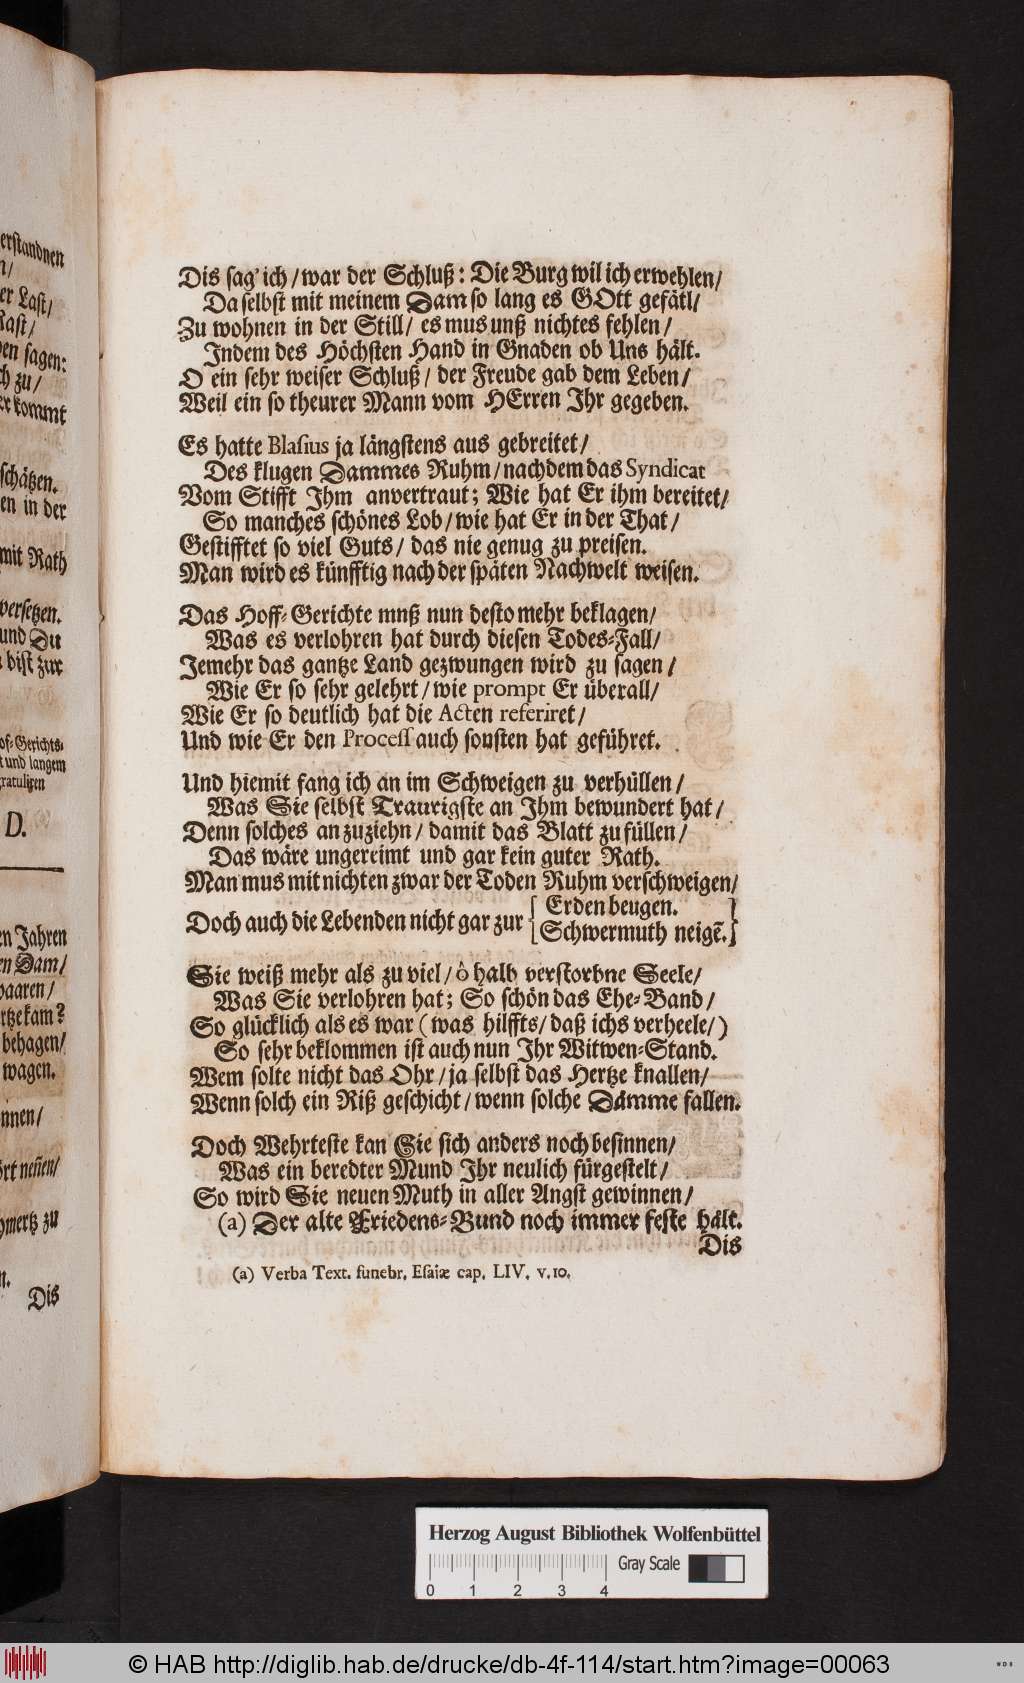 erstandnen
n/
er Last/
Rast/
en sagen:
ch zu/
er kommt
schätzen.
en in der
mit Rath
versetzen.
und Du
bist zur
of-Gerichts-
t und langem
ratuliren
D.
en Jahren
en Dam/
paaren/
rtze kam?
behagen/
wagen.
nnen/
ört neñen/
hmertz zu
n.
Dis
Dis sag' ich / war der Schluß: Die Burg wil ich erwehlen /
Da selbst mit meinem Dam so lang es GOtt gefätl /
Zu wohnen in der Still / es mus unß nichtes fehlen /
Indem des Höchsten Hand in Gnaden ob Uns hält.
O ein sehr weiser Schluß / der Freude gab dem Leben /
Weil ein so theurer Mann vom HErren Ihr gegeben.
Es hatte Blasius ja längstens aus gebreitet /
Des klugen Dammes Ruhm / nachdem das Syndicat
Vom Stifft Ihm anvertraut; Wie hat Er ihm bereitet /
So manches schönes Lob / wie hat Er in der That /
Gestifftet so viel Guts / das nie genug zu preisen.
Man wird es künfftig nach der späten Nachwelt weisen.
Das Hoff-Gerichte mnß nun desto mehr beklagen /
Was es verlohren hat durch diesen Todes-Fall /
Jemehr das gantze Land gezwungen wird zu sagen /
Wie Er so sehr gelehrt / wie prompt Er überall /
Wie Er so deutlich hat die Acten referiret /
Und wie Er den Process auch sonsten hat geführet.
Und hiemit fang ich an im Schweigen zu verhüllen /
Was Sie selbst Traurigste an Ihm bewundert hat /
Denn solches anzuziehn / damit das Blatt zu füllen /
Das wäre ungereimt und gar kein guter Rath.
Man mus mit nichten zwar der Toden Ruhm verschweigen /
Doch auch die Lebenden nicht gar zur { Erden beugen. }
{ Schwermuth neigẽ. }
Sie weiß mehr als zu viel / ô halb verstorbne Seele /
Was Sie verlohren hat; So schön das Ehe-Band /
So glücklich als es war (was hilffts / daß ichs verheele /)
So sehr beklommen ist auch nun Ihr Witwen-Stand.
Wem solte nicht das Ohr / ja selbst das Hertze knallen /
Wenn solch ein Riß geschicht / wenn solche Dämme fallen.
Doch Wehrteste kan Sie sich anders noch besinnen /
Was ein beredter Mund Ihr neulich fürgestelt /
So wird Sie neuen Muth in aller Angst gewinnen /
(a) Der alte Friedens-Bund noch immer feste hält.
Dis
(a) Verba Text. funebr. Esaiæ cap. LIV. v. 10.
Herzog August Bibliothek Wolfenbüttel
Gray Scale
0 1 2 3 4
© HAB http://diglib.hab.de/drucke/db-4f-114/start.htm?image=00063